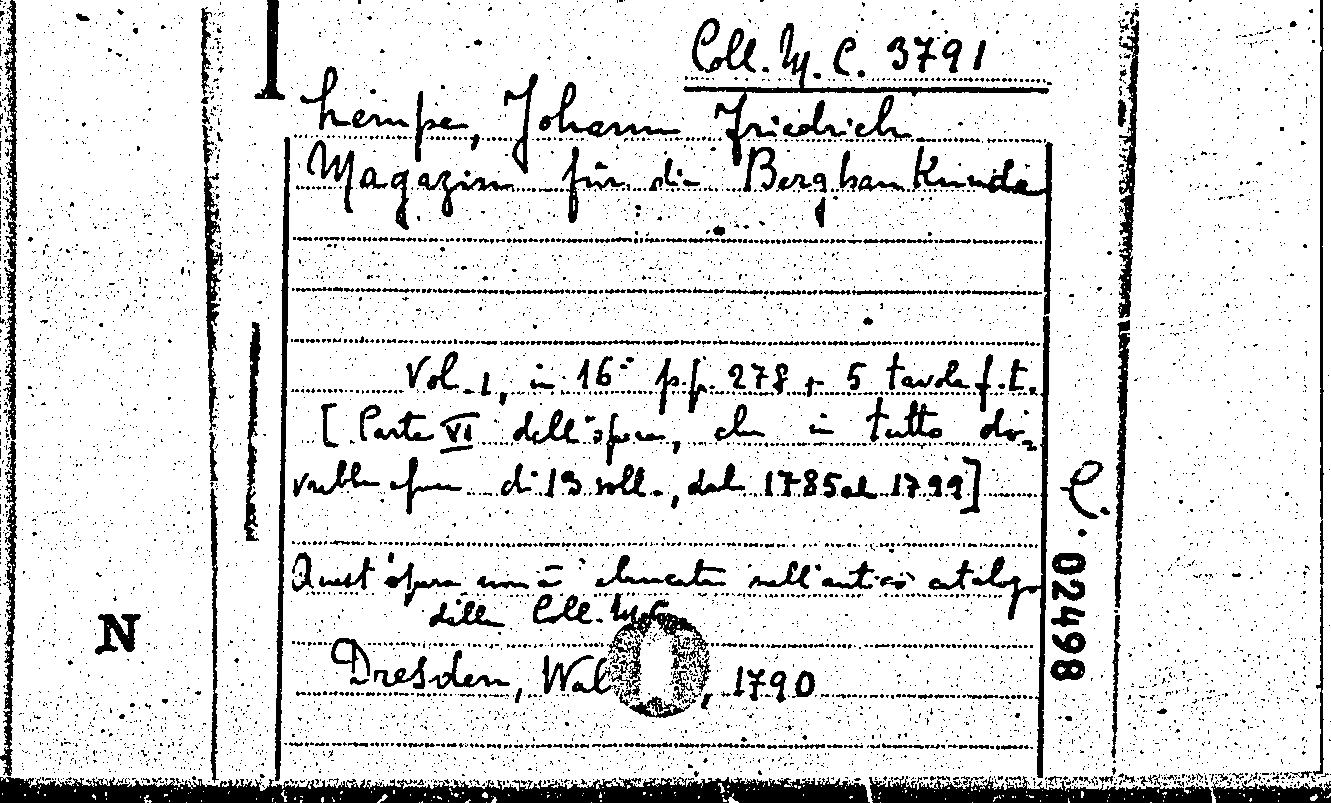 Coll. M. C. 3791
Lempe, Johann Friedrich
Magazin für die Bergbaukunde
Vol. I, in 16° pp. 278 + 5 tavole f.t.
[Parte VI dell'opera, che in tutto do-
vrebbe essere di 13 voll., dal 1785 al 1799]
Quest'opera non è elencata nell'antico catalogo
della Coll. M.C.
Dresden, Wal , 1790
N
C. 02498